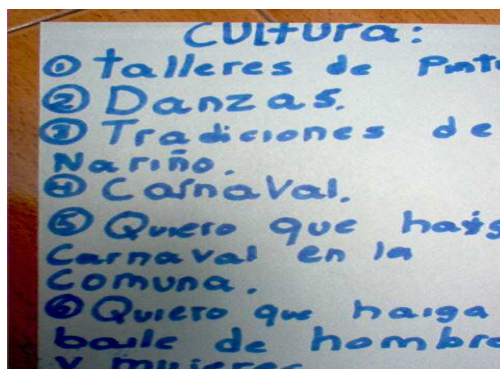 CULTURA:
① Talleres de Pint
② Danzas.
③ Tradiciones de
Nariño.
④ Carnaval.
⑤ Quiero que
Carnaval en la
Comuna.
⑥ Quiero que haiga
baile de hombre
y mujeres